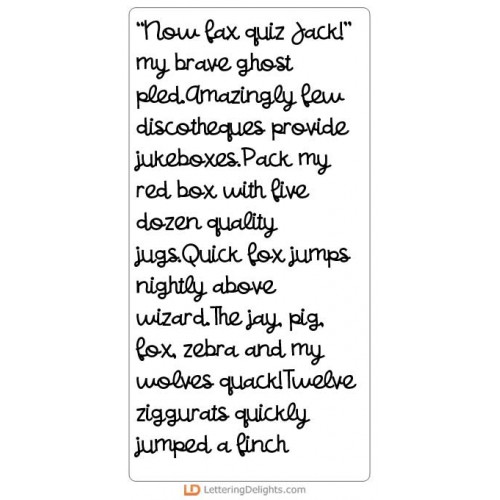 “Now fax quiz Jack!”
my brave ghost
pled.Amazingly few
discotheques provide
jukeboxes.Pack my
red box with five
dozen quality
jugs.Quick fox jumps
nightly above
wizard.The jay, pig,
fox, zebra and my
wolves quack!Twelve
ziggurats quickly
jumped a finch
LD LetteringDelights.com